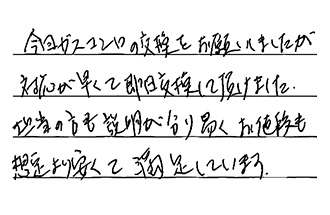 今日ガスコンロの交換をお願いしましたが
対応が早くて即日交換して頂けました.
担当の方も説明が分り易くお値段も
想定より安くて満足しています.